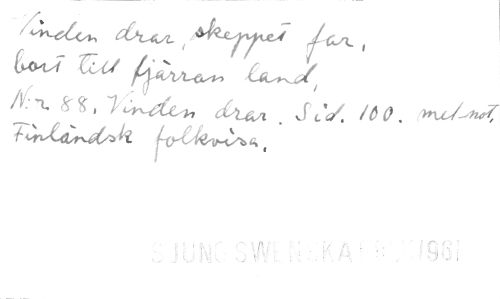 Vinden drar, skeppet far,
bort till fjärran land,
N:r 88. Vinden drar. Sid. 100. mel-not.
Finländsk folkvisa.
SJUNG SWENSKA 1961